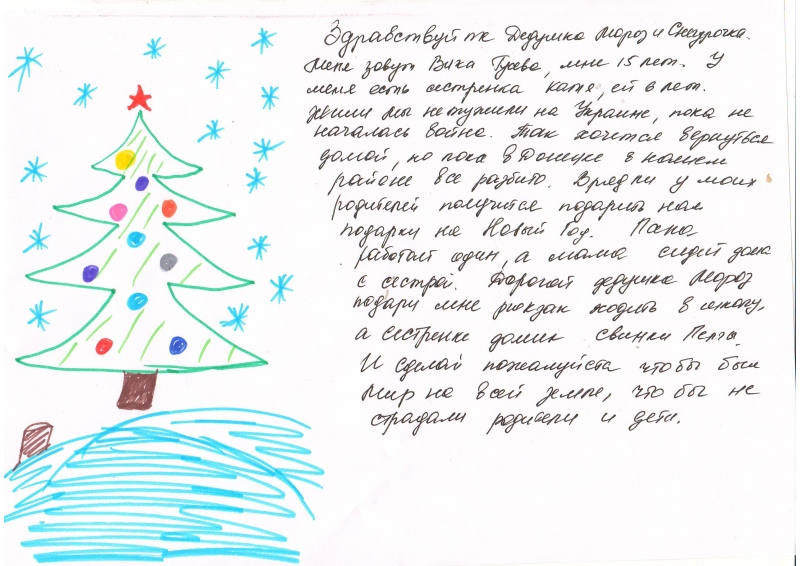 Здравствуйте Дедушка Мороз и Снегурочка.
Меня зовут Вика Гуева, мне 15 лет. У
меня есть сестренка Катя, ей 6 лет.
Жили мы не тужили на Украине, пока не
началась война. Так хочется вернуться
домой, но пока в Донецке в нашем
районе все разбито. Врядли у моих
родителей получится подарить нам
подарки на Новый Год. Папа
работает один, а мама сидит дома
с сестрой. Дорогой дедушка Мороз
подари мне рюкзак ходить в школу,
а сестренке домик свинки Пеппы.
И сделай пожалуйста чтобы был
Мир на всей земле, что бы не
страдали родители и дети.